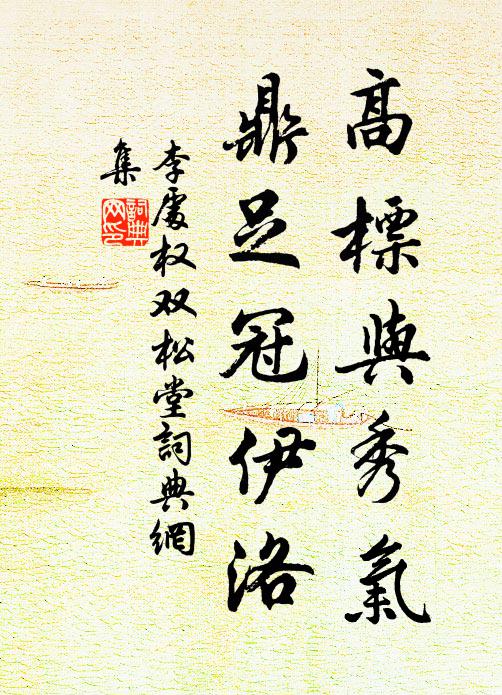 高標與秀氣
鼎足冠伊洛
李處权双松堂詞典網
集
詞典网印